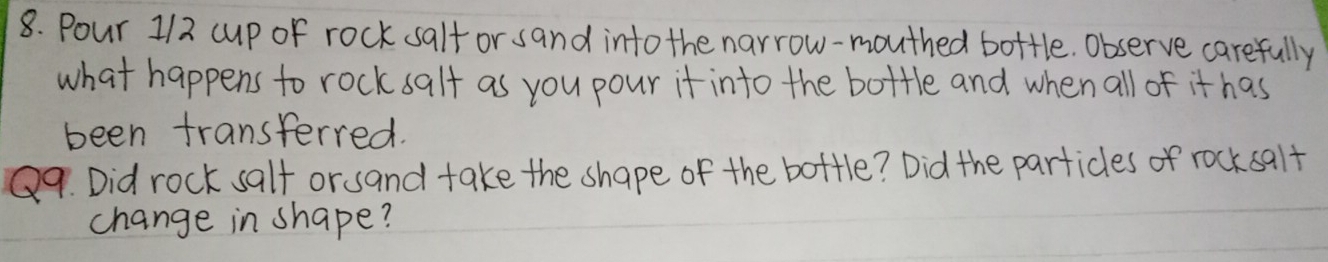 8. Pour 1/2 cup of rock salt or sand into the narrow-mouthed bottle. Observe carefully
what happens to rock salt as you pour it into the bottle and when all of it has
been transferred.
Q9. Did rock salt or sand take the shape of the bottle? Did the particles of rock salt
change in shape?